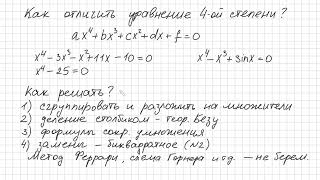 Как отличить уравнение 4-ой степени?
ax⁴+bx³+cx²+dx+f=0
x⁴-3x³-x²+11x-10=0 x⁴-x³+sinx=0
x⁴-25=0
Как решать?
1) сгруппировать и разложить на множители
2) деление столбиком - теор. Безу
3) формулы сокр. умножения
4) замены - биквадратное (№2)
Метод Феррари, схема Горнера и т.д. — не берем.